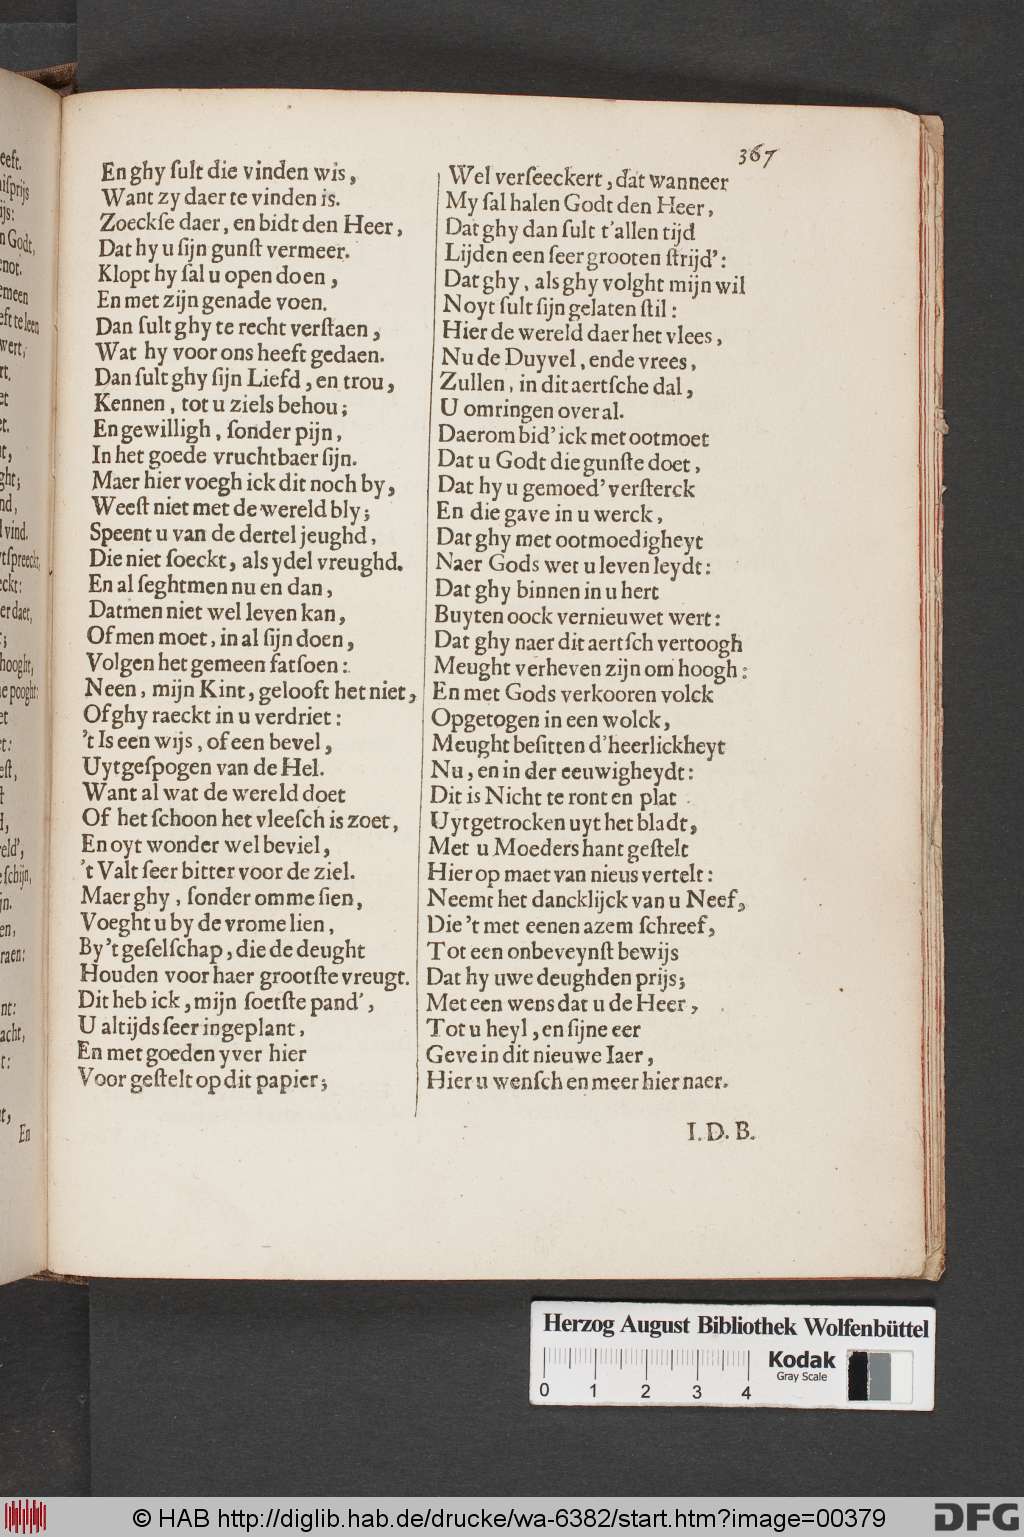 367
En ghy ſult die vinden wis,
Want zy daer te vinden is.
Zoeckſe daer, en bidt den Heer,
Dat hy u ſijn gunſt vermeer.
Klopt hy ſal u open doen,
En met zijn genade voen.
Dan ſult ghy te recht verſtaen,
Wat hy voor ons heeft gedaen.
Dan ſult ghy ſijn Liefd, en trou,
Kennen, tot u ziels behou;
En gewilligh, ſonder pijn,
In het goede vruchtbaer ſijn.
Maer hier voegh ick dit noch by,
Weeſt niet met de wereld bly;
Speent u van de dertel jeughd,
Die niet ſoeckt, als ydel vreughd.
En al ſeghtmen nu en dan,
Datmen niet wel leven kan,
Of men moet, in al ſijn doen,
Volgen het gemeen fatſoen:
Neen, mijn Kint, gelooft het niet,
Of ghy raeckt in u verdriet:
't Is een wijs, of een bevel,
Uytgeſpogen van de Hel.
Want al wat de wereld doet
Of het ſchoon het vleeſch is zoet,
En oyt wonder wel beviel,
't Valt ſeer bitter voor de ziel.
Maer ghy, ſonder omme ſien,
Voeght u by de vrome lien,
By 't geſelſchap, die de deught
Houden voor haer grootſte vreugt.
Dit heb ick, mijn ſoetſte pand',
U altijds ſeer ingeplant,
En met goeden yver hier
Voor geſtelt op dit papier;
Wel verſeeckert, dat wanneer
My ſal halen Godt den Heer,
Dat ghy dan ſult t'allen tijd
Lijden een ſeer grooten ſtrijd':
Dat ghy, als ghy volght mijn wil
Noyt ſult ſijn gelaten ſtil:
Hier de wereld daer het vlees,
Nu de Duyvel, ende vrees,
Zullen, in dit aertſche dal,
U omringen over al.
Daerom bid' ick met ootmoet
Dat u Godt die gunſte doet,
Dat hy u gemoed' verſterck
En die gave in u werck,
Dat ghy met ootmoedigheyt
Naer Gods wet u leven leydt:
Dat ghy binnen in u hert
Buyten oock vernieuwet wert:
Dat ghy naer dit aertſch vertoogh
Meught verheven zijn om hoogh:
En met Gods verkooren volck
Opgetogen in een wolck,
Meught beſitten d'heerlickheyt
Nu, en in der eeuwigheydt:
Dit is Nicht te ront en plat
Uytgetrocken uyt het bladt,
Met u Moeders hant geſtelt
Hier op maet van nieus vertelt:
Neemt het dancklijck van u Neef,
Die 't met eenen azem ſchreef,
Tot een onbeveynſt bewijs
Dat hy uwe deughden prijs;
Met een wens dat u de Heer,
Tot u heyl, en ſijne eer
Geve in dit nieuwe Iaer,
Hier u wenſch en meer hier naer.
I. D. B.
Herzog August Bibliothek Wolfenbüttel
0 1 2 3 4
Kodak
Gray Scale
© HAB http://diglib.hab.de/drucke/wa-6382/start.htm?image=00379
DFG